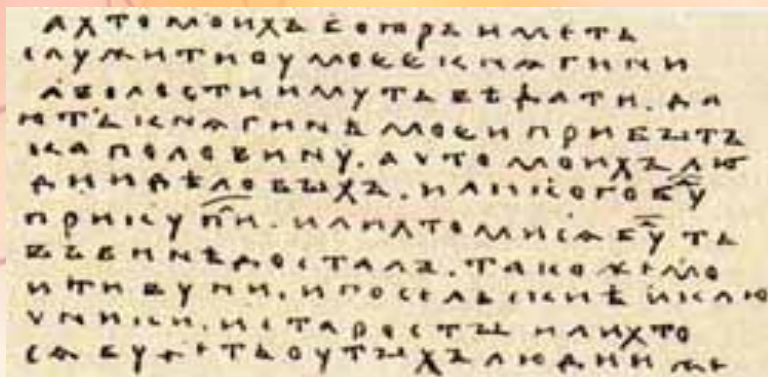 А ХТО МОИХЪ БОꙖРЪ ИМЕТЬ
СЛУЖИТИ ОУ МОЕЕ КНѦГИНИ
А ВОЛОСТИ ИМУТЬ ВѢДАТИ. ДА
ЮТЬ КНѦГИНѢ МОЕИ ПРИБЫТЪ
КА ПОЛОВИНУ. А ЧТО МОИХЪ ЛЮ
ДИИ ДѢЛОВЫХЪ. ИЛИ КОГО БУ
ПРИКУПИ. ИЛИ ХТО МИ СѦ БУТЬ
ВЪ ВИНѢ ДОСТАЛЪ. ТАКОЖЕ МО
И ТИВУНИ. И ПОСЕЛЬСКИѢ И КЛЮ
ЧНИКИ. И СТАРОСТЫ ИЛИ ХТО
СѦ БУДЕТЬ ОУ ТЫХЪ ЛЮДИИ ЖЕ